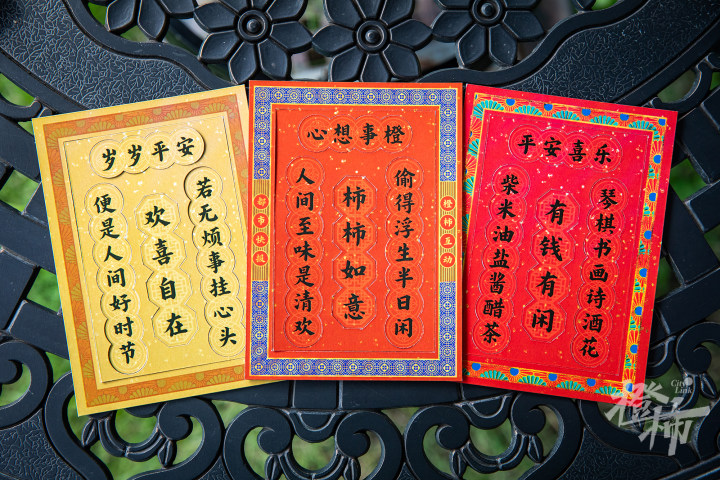 岁岁平安
若无烦事挂心头
欢喜自在
便是人间好时节
心想事橙
偷得浮生半日闲
柿柿如意
人间至味是清欢
都事快报
橙柿互动
平安喜乐
琴棋书画诗酒花
有钱有闲
柴米油盐酱醋茶
City Link
橙柿